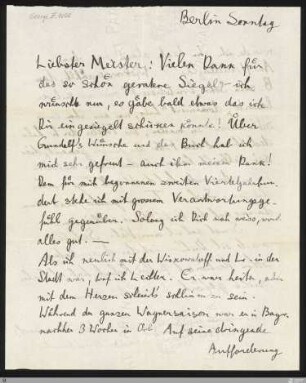 Berlin Sonntag
Liebster Meister: Vielen Dank für
das so schön geratene Siegel: ich
wünschte nur, es gäbe bald etwas das ich
Dir eingesiegelt schicken könnte! Über
Gundolf's Wünsche und das Buch hab ich
mich sehr gefreut – auch ihm meinen Dank!
Dem für mich begonnenen zweiten Vierteljahrhun-
dert stehe ich mit grossem Verantwortungsge-
fühl gegenüber. Solang ich Dich nah weiss, wird
alles gut. —
Als ich neulich mit der und Lo. in der
Stadt war, traf ich. Er war heiter, aber
mit dem Herzen scheint's schlimm zu sein.
Während der ganzen Wagnersaison war er in Bayr.
nachher 3 Wochen in. Auf seine dringende
Aufforderung